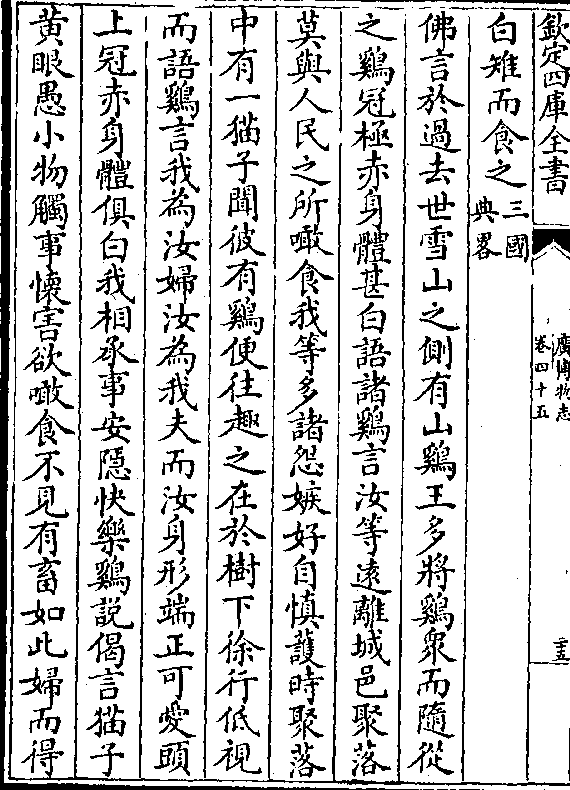 欽定四庫全書
廣博物志
卷四十五
二十五
白雉而食之三國
典畧
佛言於過去世雪山之側有山鷄王多將鷄衆而隨從
之鷄冠極赤身體甚白語諸鷄言汝等遠離城邑聚落
莫與人民之所噉食我等多諸怨嫉好自慎護時聚落
中有一猫子聞彼有鷄便往趣之在於樹下徐行低視
而語鷄言我為汝婦汝為我夫而汝身形端正可愛頭
上冠赤身體俱白我相承事安隱快樂鷄説偈言猫子
黄眼愚小物觸事懐害欲噉食不見有畜如此婦而得